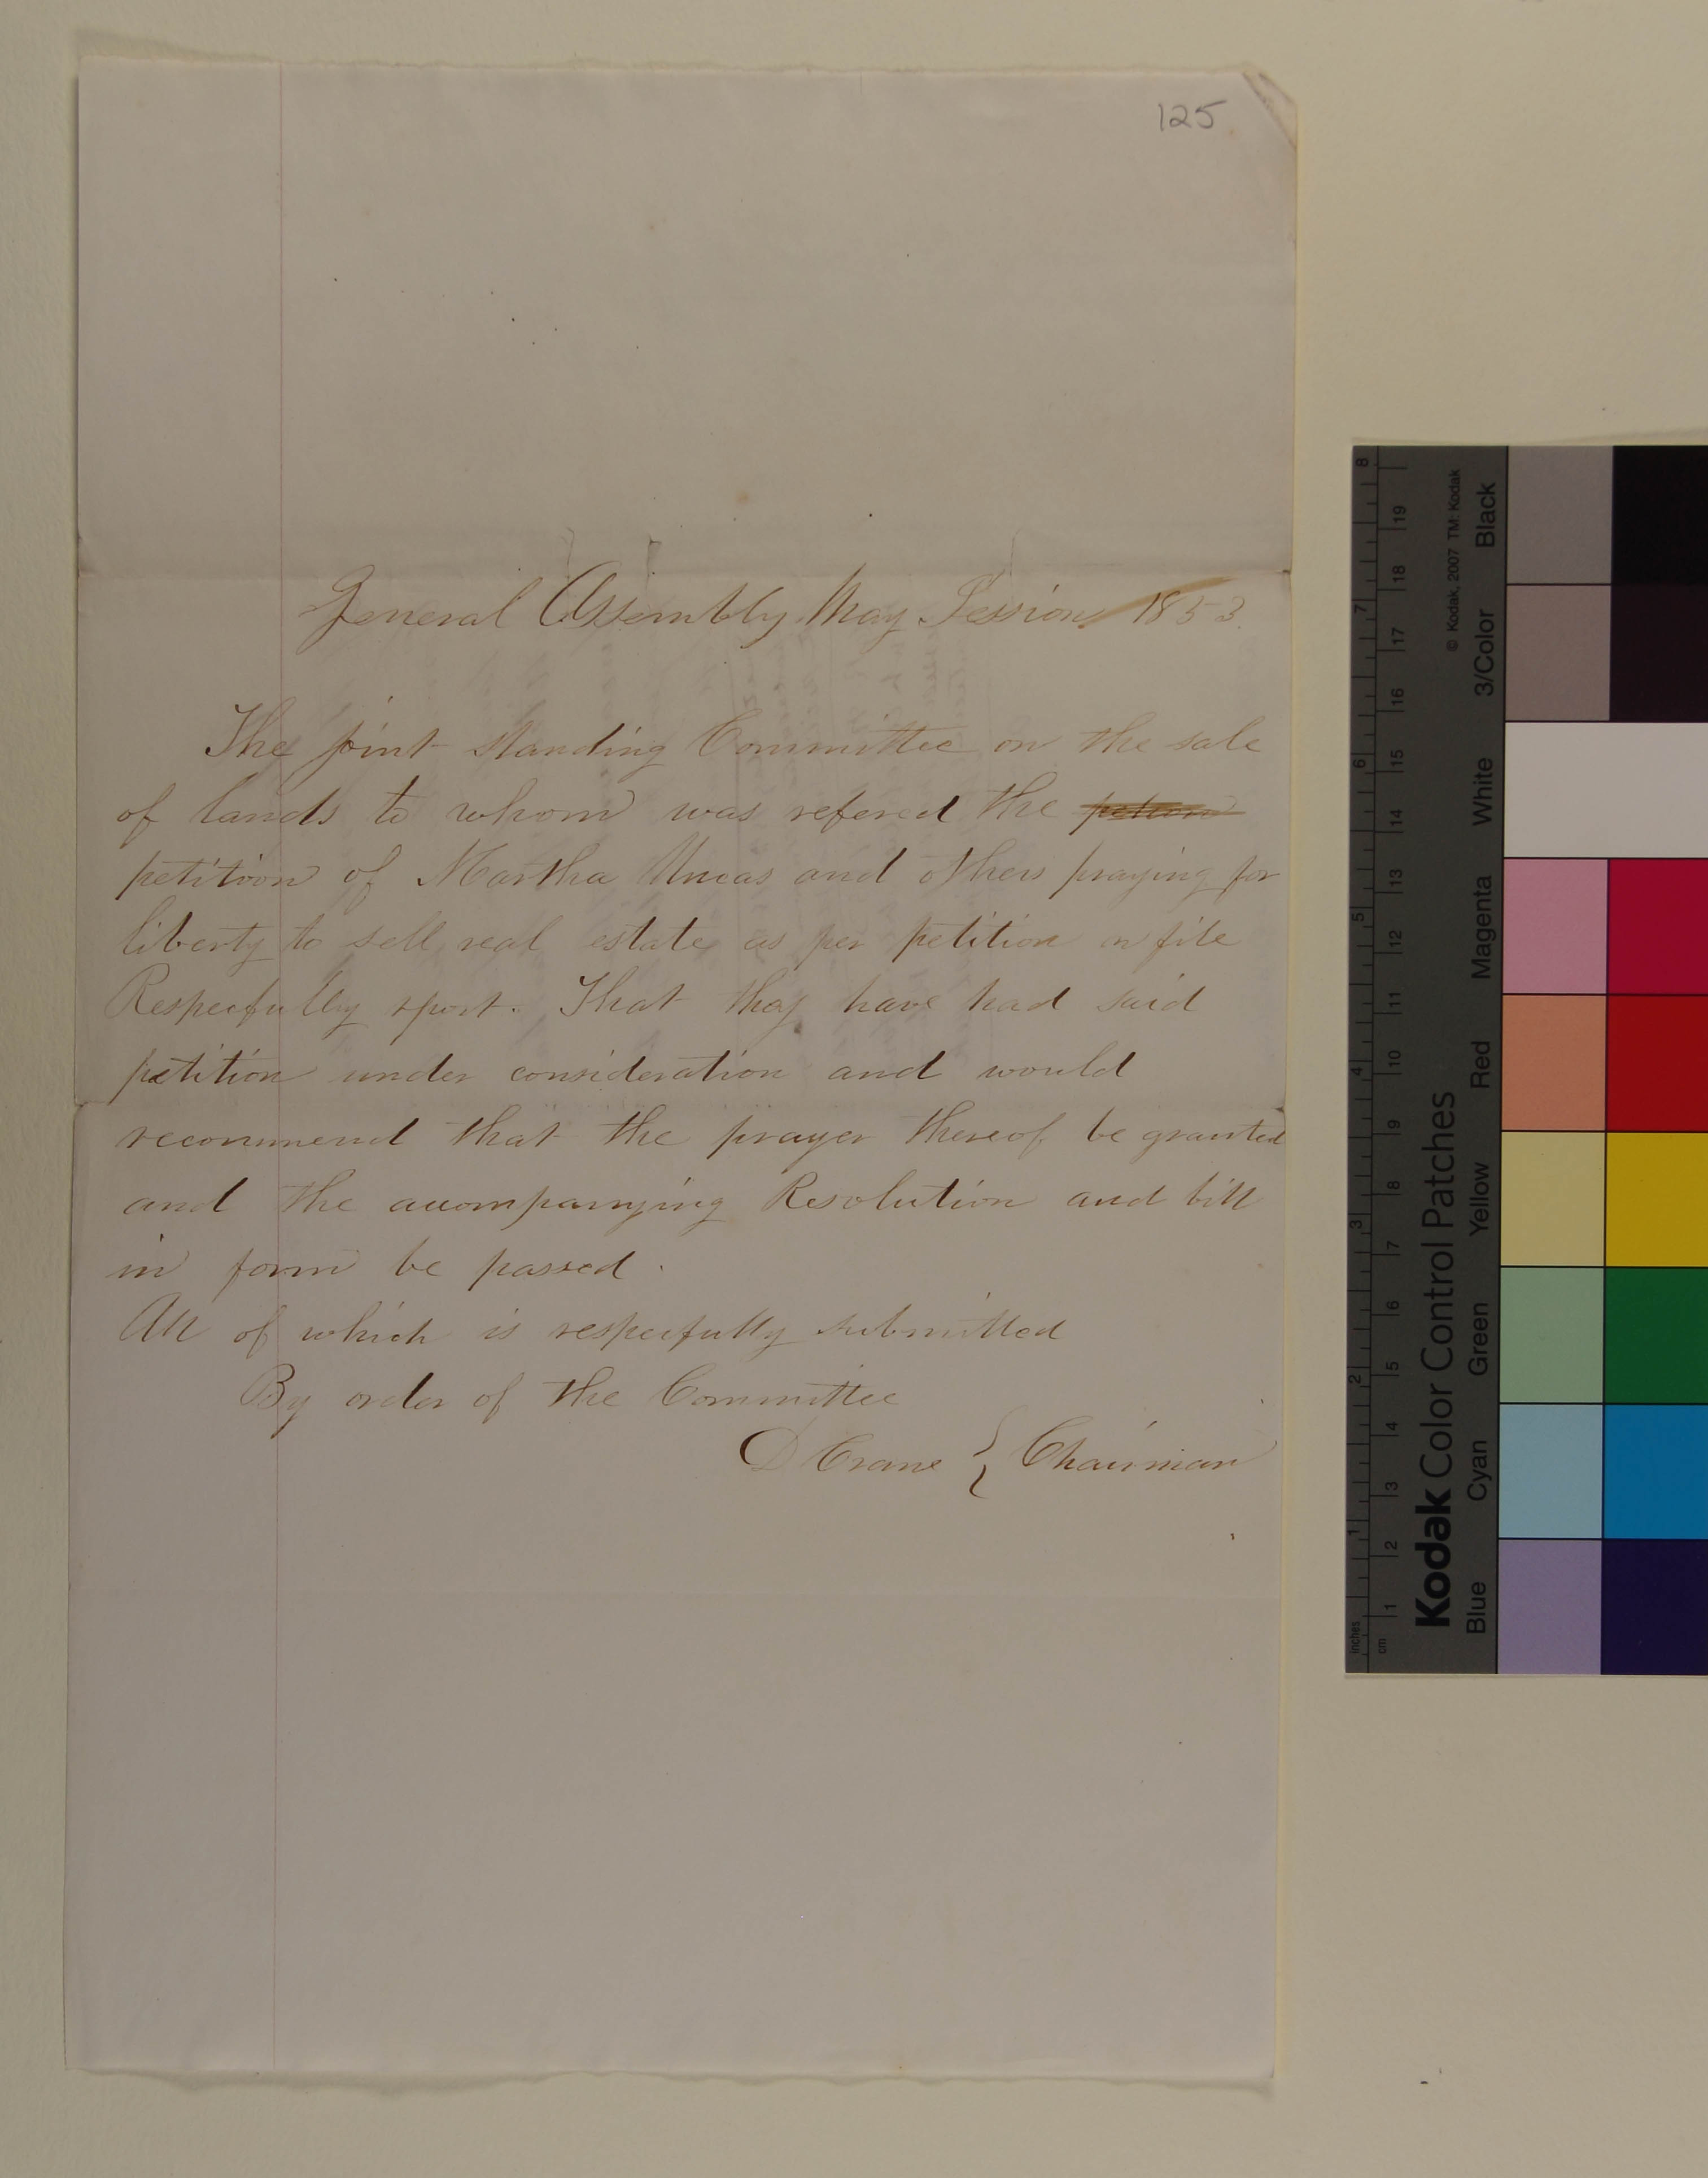 125
General Assembly May Session 1853.
The joint standing Committee on the sale
of lands to whom was refered the petition
petition of Martha Uncas and others praying for
liberty to sell real estate as per petition on file
Respecfully report. That they have had said
petition under consideration and would
recommend that the prayer thereof be granted
and the acompanying Resolution and bill
in form be passed.
All of which is respecfully submitted
By order of the Committee
D Crane } Chairman
Kodak Color Control Patches
© Kodak, 2007 TM: Kodak
Blue Cyan Green Yellow Red Magenta White 3/Color Black
inches 1 2 3 4 5 6 7 8
cm 1 2 3 4 5 6 7 8 9 10 11 12 13 14 15 16 17 18 19